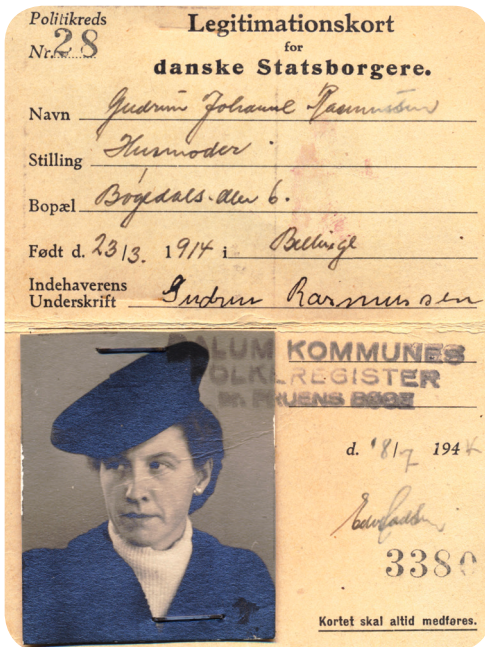 Politikreds
Nr. 28
Legitimationskort
for
danske Statsborgere.
Navn Gudrun Johanne Rasmussen
Stilling Husmoder
Bopæl Bøgedals-allé 6.
Født d. 23/3. 1914 i Bellinge
Indehaverens
Underskrift Gudrun Rasmussen
DALUM KOMMUNES
FOLKEREGISTER
pr. FRUENS BØGE
d. 18/7 1944
3380
Kortet skal altid medføres.